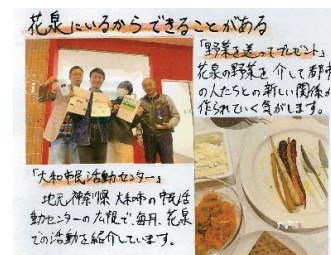 花泉にいるからできることがある
「野菜を送ってプレゼント」
花泉の野菜を介して都市
の人たちとの新しい関係が
作られていく気がします。
「大和市民活動センター」
地元神奈川県大和市の市民活
動センターの広報で、毎月、花泉
での活動を紹介しています。